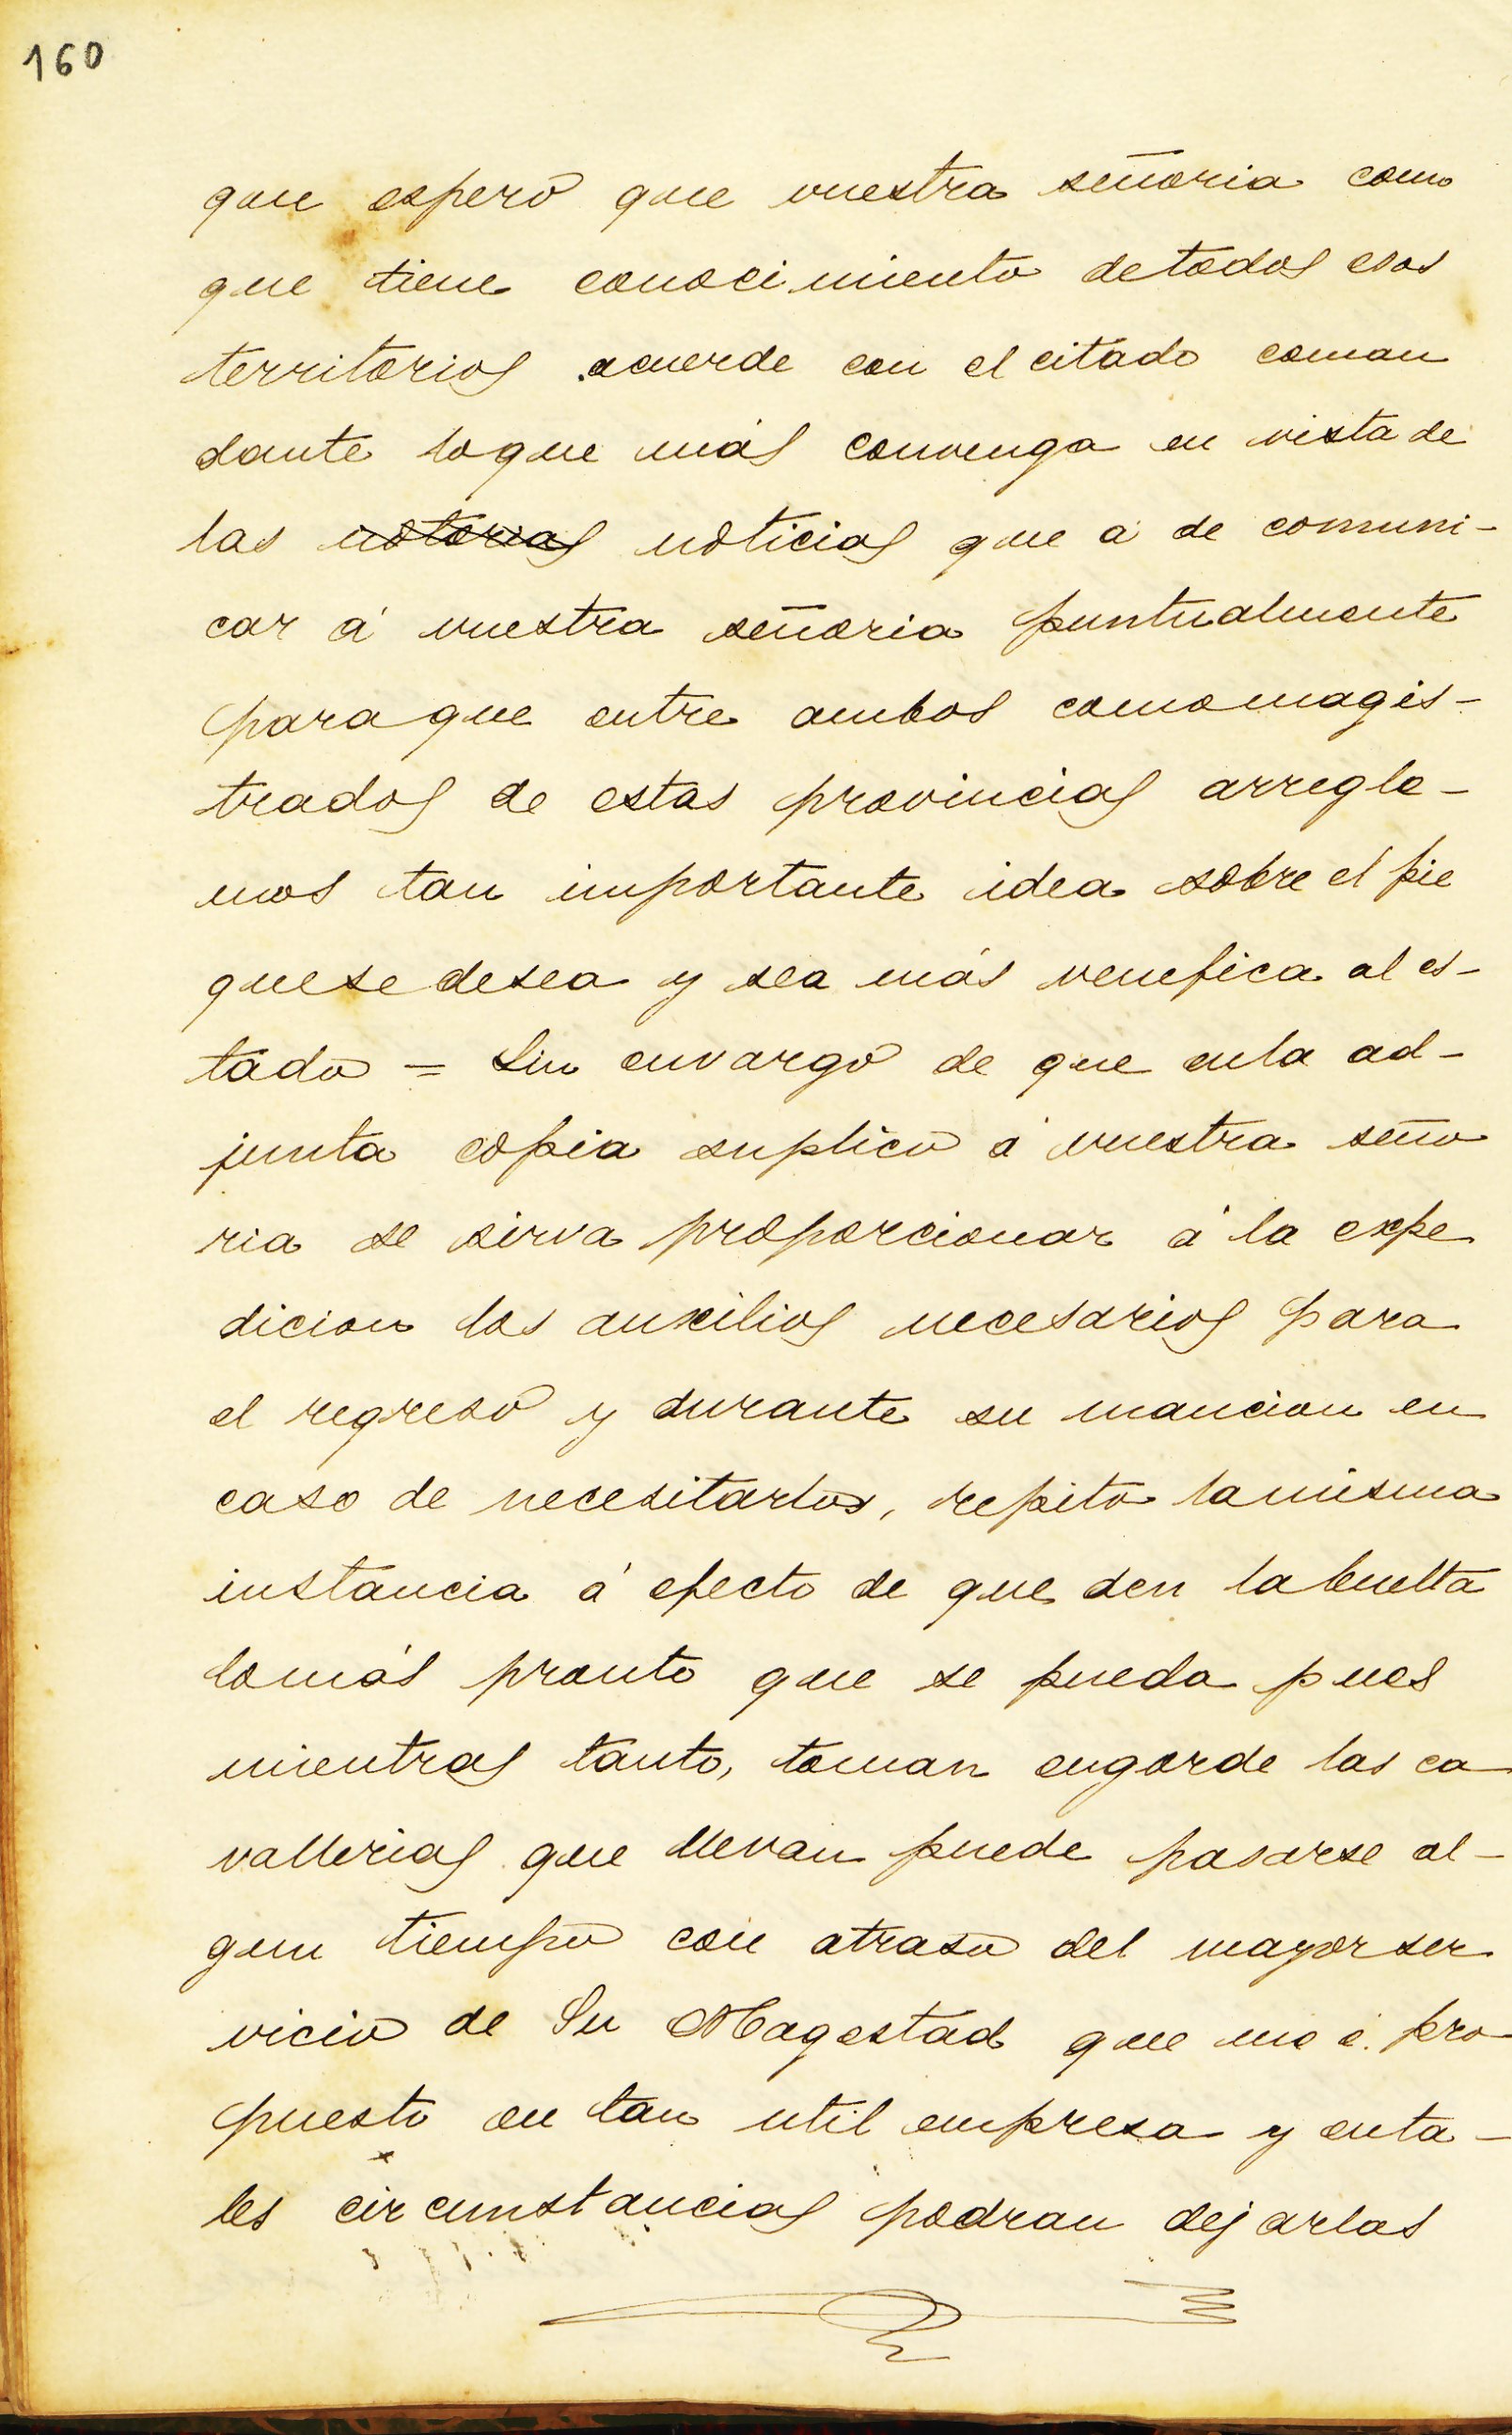 160
que espero que vuestra señoria como
que tiene conocimiento detodos esos
territorios acuerde con el citado coman
dante loque más convenga en vista de
las notorias noticias que á de comuni-
car á vuestra señoria puntualmente
paraque entre ambos comomagis-
trados de estas provincias arregle-
mos tan importante idea sobre el pie
quese desea y sea más venefica al es-
tado = Sin envargo de que enla ad-
junta copia suplico á vuestra seño
ria se sirva proporcionar á la expe
dicion los auxilios necesarios para
el regreso y durante su mancion en
caso de necesitarlos, repito lamisma
instancia á efecto de que den labuelta
lomás pronto que se pueda pues
mientras tanto, toman engorde las ca
vallerias que llevan puede pasarse al-
gun tiempo con atraso del mayor ser
vicio de Su Magestad que me é pro
puesto en tan util empresa y enta-
les circunstancias podran dejarlas